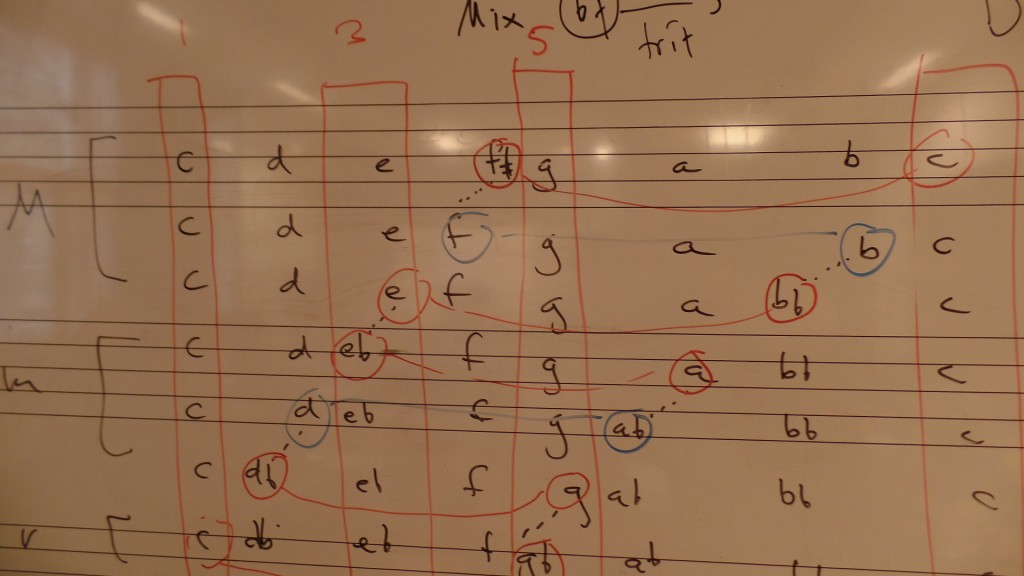 Mix bf
1 3 5 trit
c d e f# g a b c
M
c d e f g a b c
c d e f g a bb c
c d eb f g a bb c
m
c d eb f g ab bb c
c db eb f g ab bb c
c db eb f gb ab